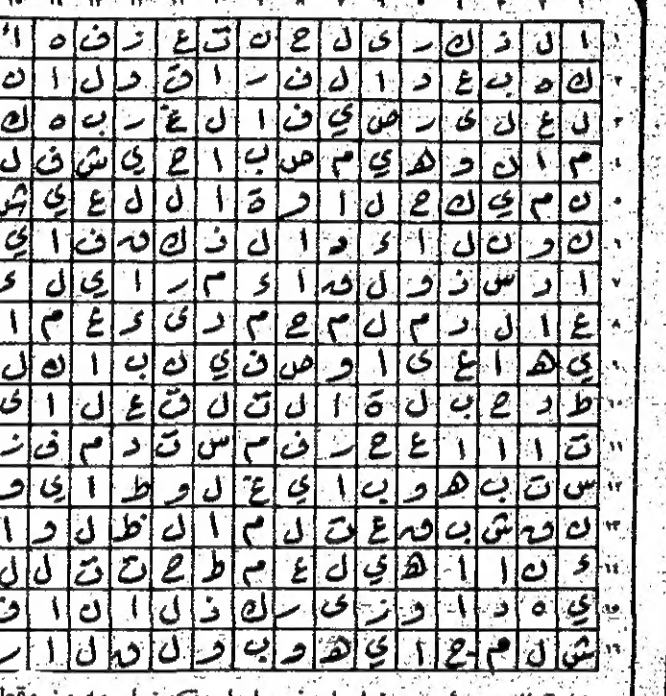 ١ ا ل ذ ك ر ى ل ح ن ت ع ز ف ه
٢ ك ه ب ع د ا ل ف ر ا ق و ل ا ن
٣ ل ع ل ى ر ص ي ف ا ل غ ر ب ه ك
٤ م ا ن و ه ي م ص ب ا ح ي ش ق ل
٥ ن م ي ك ح ل ا و ة ا ل ل ع ي ش
٦ ن و ن ل ا ء د ا ل ذ ك ق ف ا ي
٧ ا د س ذ و ل ق ا ء م ر ا ي ل ء
٨ ع ا ل د م ل م ح م د ى ء غ م ا
٩ ي ه ا ع ى ا و ص ف ي ن ب ا ن ل
١٠ ط د ح ب ل ة ا ل ت ل ق ع ل ا ى
١١ ت ا ا ا ع ح ر ف م س ت د م ق ز
١٢ س ت ب ه و ب ا ي ع ل و ط ا ي و
١٣ ن ق ش ب ق ع ت ل م ا ل ظ ل و ا
١٤ ء ن ا ا ه ي ل ع م ط ح ت ت ل ل
١٥ ي ه د ا و ز ى ر ك ذ ل ا ن ا ق
١٦ ش ل م ح ا ي ه و ب و ل ق ل ا ر